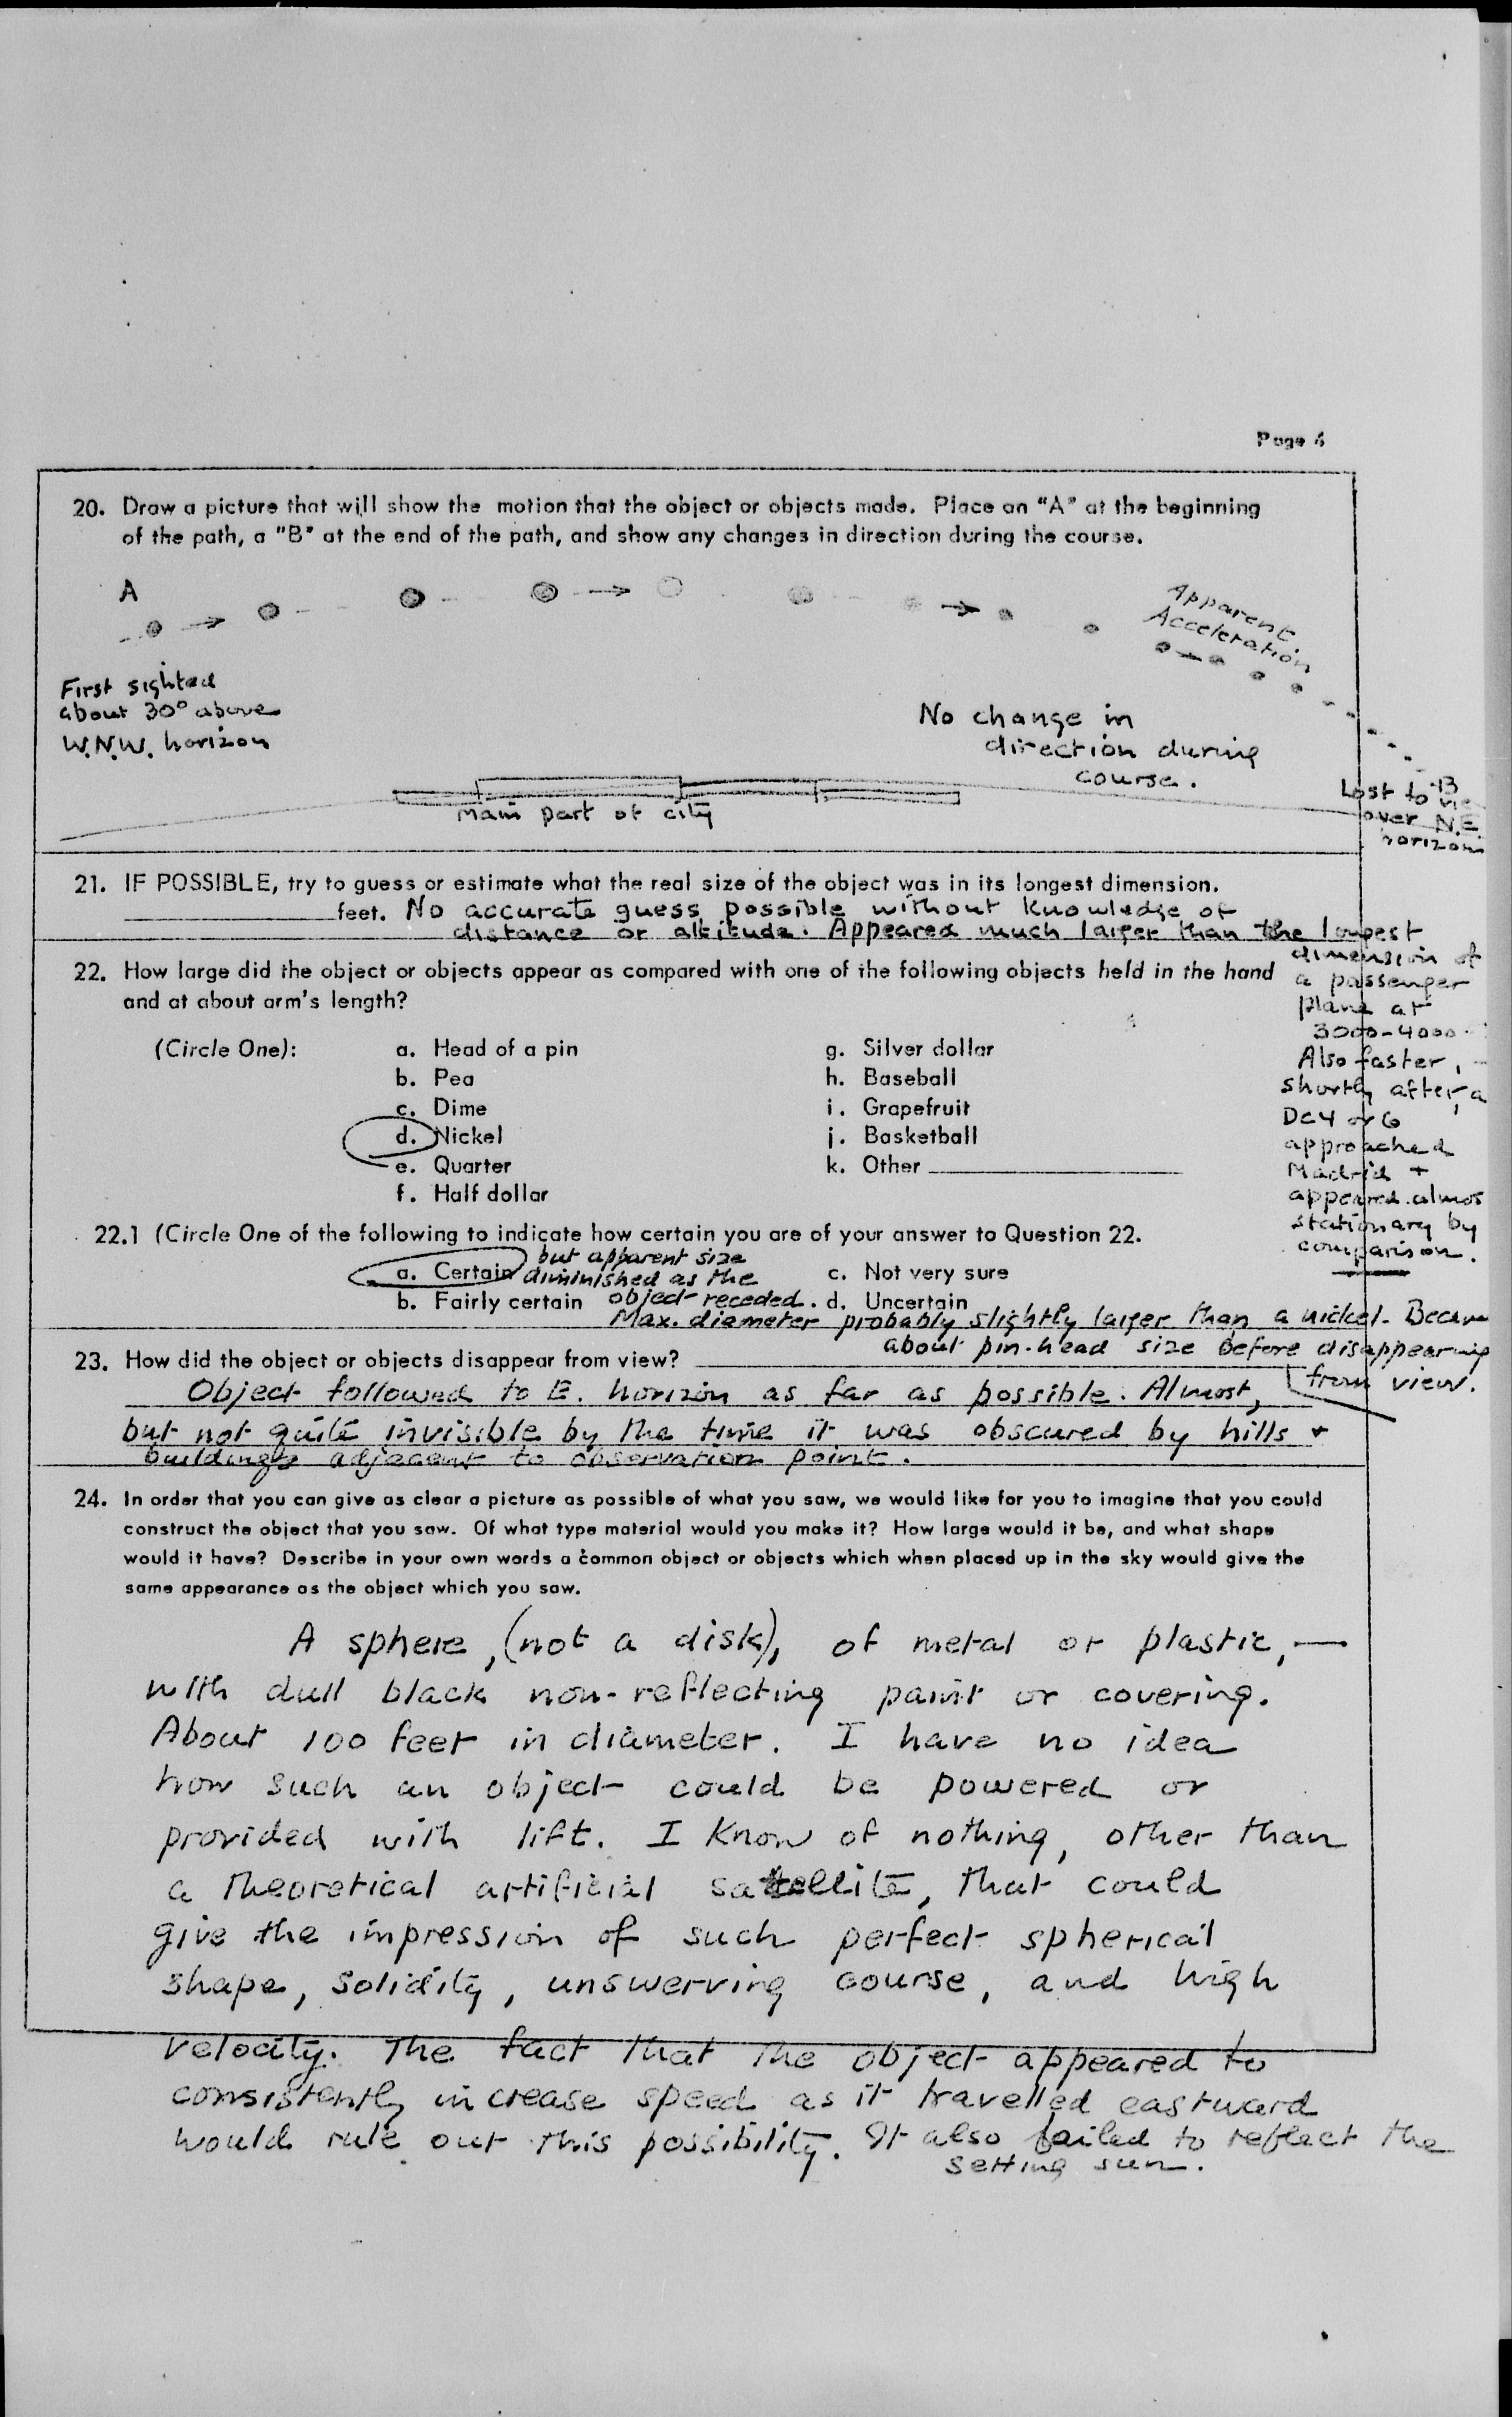 Page 6
20. Draw a picture that will show the motion that the object or objects made. Place an "A" at the beginning
of the path, a "B" at the end of the path, and show any changes in direction during the course.
A
Apparent
Acceleration
First sighted
about 30° above
W.N.W. horizon
No change in
direction during
course.
Main part of city
B
Lost to
over N.E.
horizon
21. IF POSSIBLE, try to guess or estimate what the real size of the object was in its longest dimension.
feet. No accurate guess possible without knowledge of
distance or altitude. Appeared much larger than the longest
dimension of
a passenger
plane at
3000-4000
Also faster,
shortly after, a
DC4 or 6
approached
Madrid +
appeared almos
stationary by
comparison.
22. How large did the object or objects appear as compared with one of the following objects held in the hand
and at about arm's length?
(Circle One):
a. Head of a pin
b. Pea
c. Dime
d. Nickel
e. Quarter
f. Half dollar
g. Silver dollar
h. Baseball
i. Grapefruit
j. Basketball
k. Other
22.1 (Circle One of the following to indicate how certain you are of your answer to Question 22.
a. Certain
b. Fairly certain
c. Not very sure
d. Uncertain
but apparent size
diminished as the
object receded.
Max. diameter probably slightly larger than a nickel. Became
about pin-head size before disappearing
from view.
23. How did the object or objects disappear from view?
Object followed to E. horizon as far as possible. Almost,
but not quite invisible by the time it was obscured by hills +
buildings adjacent to observation point.
24. In order that you can give as clear a picture as possible of what you saw, we would like for you to imagine that you could
construct the object that you saw. Of what type material would you make it? How large would it be, and what shape
would it have? Describe in your own words a common object or objects which when placed up in the sky would give the
same appearance as the object which you saw.
A sphere, (not a disk), of metal or plastic, —
with dull black non-reflecting paint or covering.
About 100 feet in diameter. I have no idea
how such an object could be powered or
provided with lift. I know of nothing, other than
a theoretical artificial satellite, that could
give the impression of such perfect spherical
shape, solidity, unswerving course, and high
velocity. The fact that the object appeared to
consistently increase speed as it travelled eastward
would rule out this possibility. It also failed to reflect the
setting sun.